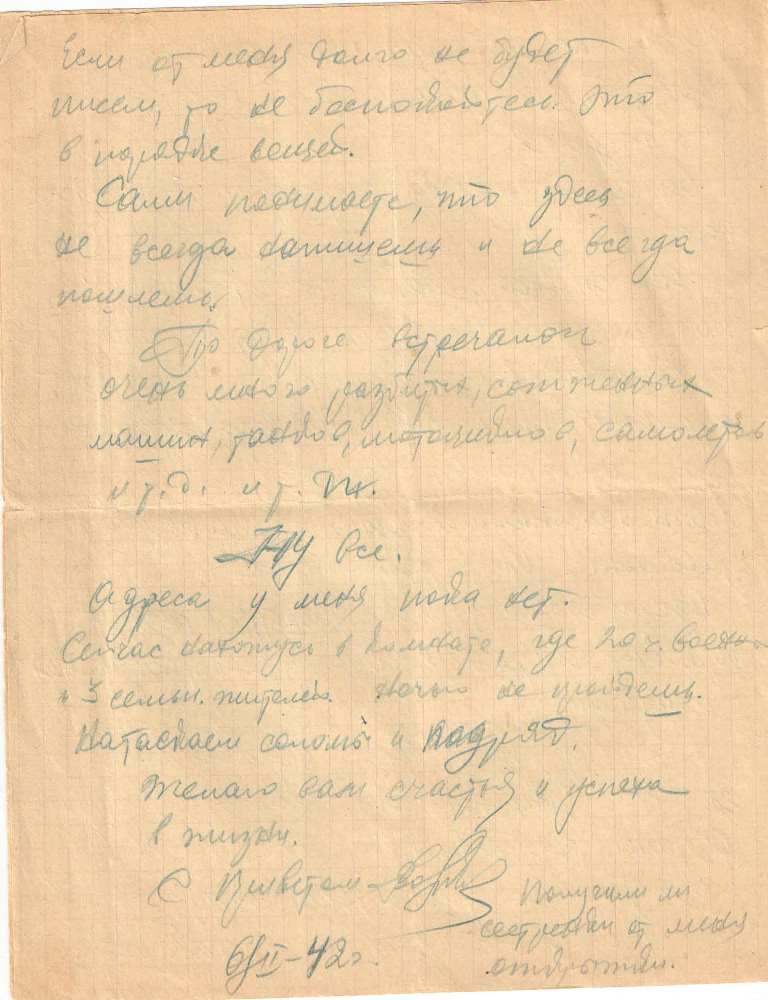 Если от меня долго не будет
писем, то не беспокойтесь. Это
в порядке вещей.
Сами понимаете, что здесь
не всегда напишешь и не всегда
пошлешь.
По дороге встречали
очень много разбитых, сожженных
машин, танков, мотоциклов, самолетов
и т.д. и т. п.
Ну все.
Адреса у меня пока нет.
Сейчас нахожусь в комнате, где 20 ч. военных
и 3 семьи жителей. Ночью не пройдешь.
Натаскаем соломы и подряд.
Желаю вам счастья и успеха
в жизни.
С приветом
6/II-42г.
Получили ли
сестренки от меня
открытки.